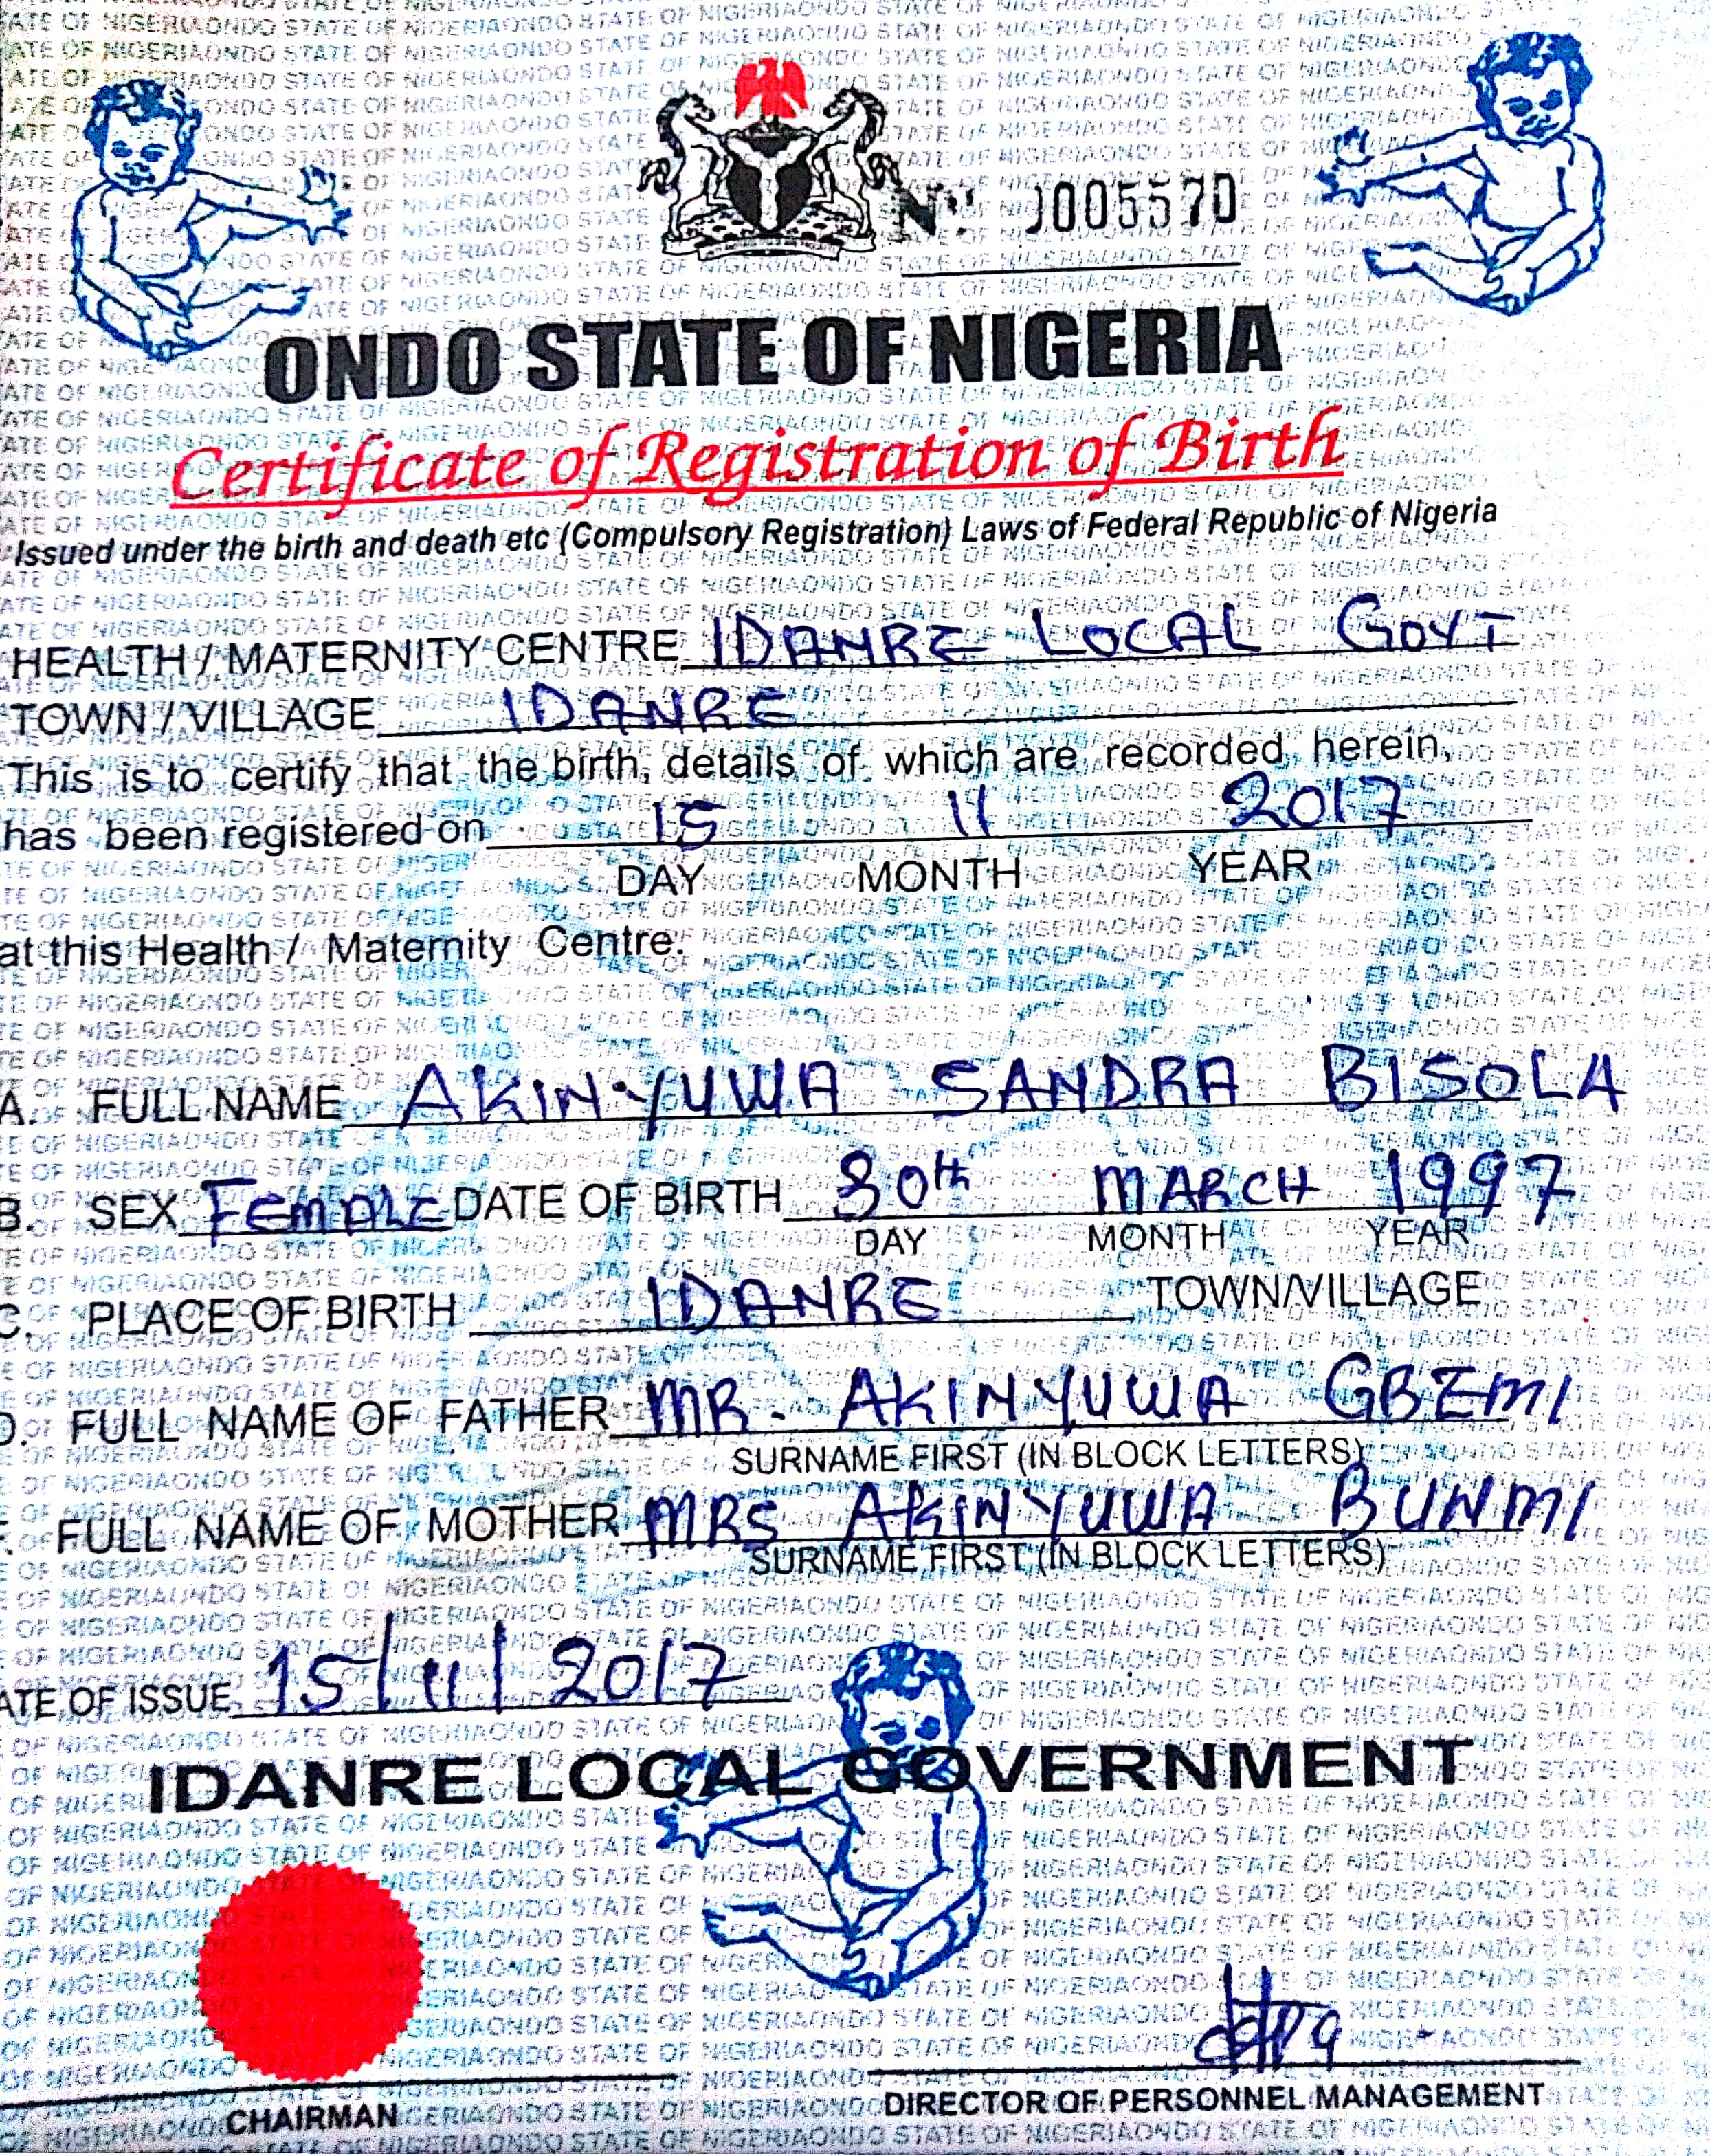 Nº 0005570
ONDO STATE OF NIGERIA
Certificate of Registration of Birth
Issued under the birth and death etc (Compulsory Registration) Laws of Federal Republic of Nigeria
HEALTH / MATERNITY CENTRE IDANRE LOCAL GOVT
TOWN / VILLAGE IDANRE
This is to certify that the birth, details of which are recorded herein,
has been registered on 15 11 2017
DAY MONTH YEAR
at this Health / Maternity Centre.
A. FULL NAME AKINYUWA SANDRA BISOLA
B. SEX FEMALE DATE OF BIRTH 30th MARCH 1997
DAY MONTH YEAR
C. PLACE OF BIRTH IDANRE TOWN/VILLAGE
D. FULL NAME OF FATHER MR. AKINYUWA GBEMI
SURNAME FIRST (IN BLOCK LETTERS)
FULL NAME OF MOTHER MRS AKINYUWA BUNMI
SURNAME FIRST (IN BLOCK LETTERS)
ATE OF ISSUE 15/11/2017
IDANRE LOCAL GOVERNMENT
CHAIRMAN
DIRECTOR OF PERSONNEL MANAGEMENT